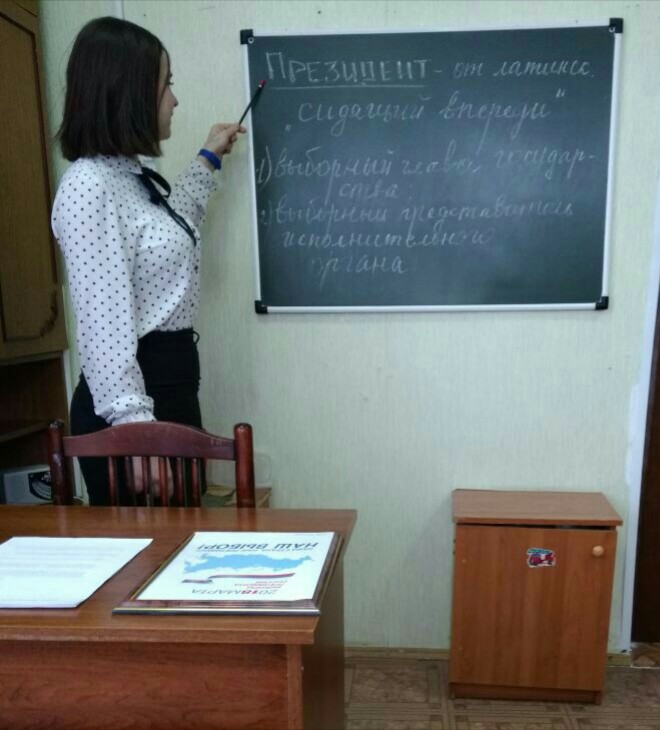 ПРЕЗИДЕНТ - от латинск.
"сидящий впереди"
1) выборный глава государ-
ства
2) выборный представитель
исполнительного
органа
НАШ ВЫБОР!
2018 МАРТА